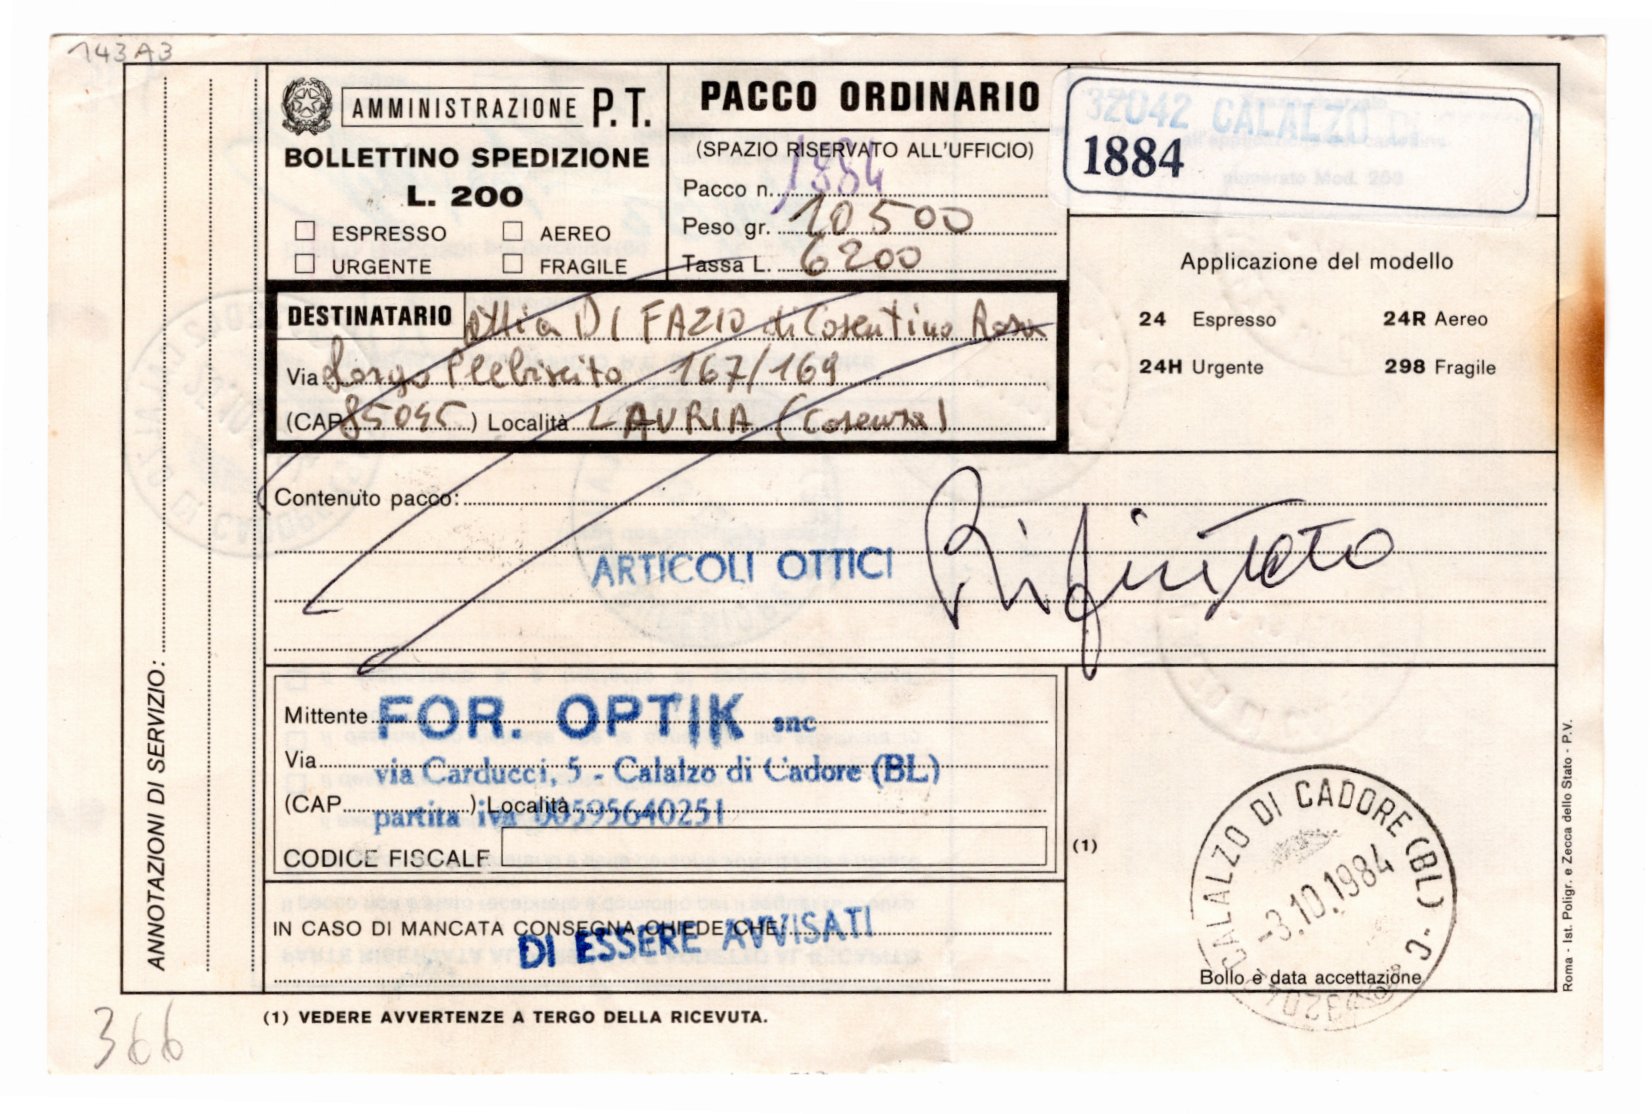 143A3
AMMINISTRAZIONE P.T.
BOLLETTINO SPEDIZIONE
L. 200
ESPRESSO AEREO
URGENTE FRAGILE
PACCO ORDINARIO
(SPAZIO RISERVATO ALL'UFFICIO)
Pacco n. 1884
Peso gr. 10500
Tassa L. 6200
32042 CALALZO DI
1884
Applicazione del modello
24 Espresso 24R Aereo
24H Urgente 298 Fragile
DESTINATARIO Ottica DI FAZIO di Cosentino Rosa
Via Largo Plebiscito 167/169
(CAP 85045) Località LAURIA (Cosenza)
Contenuto pacco:
ARTICOLI OTTICI
Rifiutato
Mittente FOR. OPTIK snc
Via via Carducci, 5 - Calalzo di Cadore (BL)
(CAP ) Località
partita iva 00595640251
CODICE FISCALE
(1)
IN CASO DI MANCATA CONSEGNA CHIEDE CHE:
DI ESSERE AVVISATI
CALALZO DI CADORE (BL) - C
-3.10.1984
Bollo e data accettazione
ANNOTAZIONI DI SERVIZIO:
Roma - Ist. Poligr. e Zecca dello Stato - P.V.
(1) VEDERE AVVERTENZE A TERGO DELLA RICEVUTA.
366